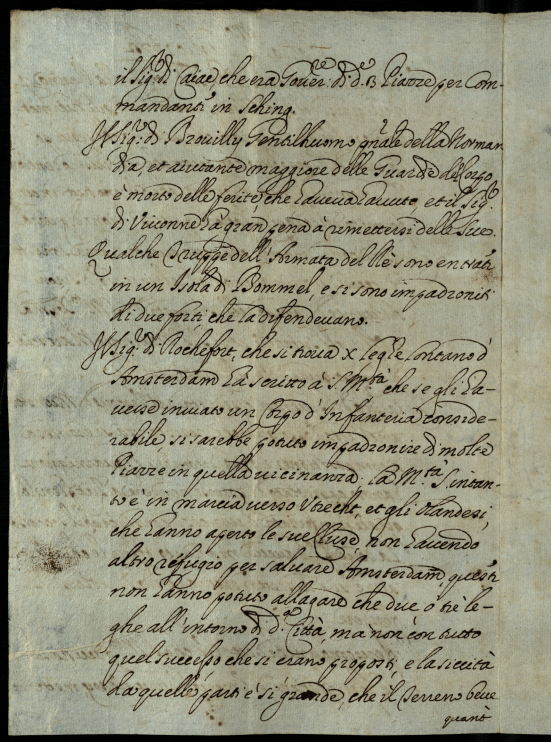 il Sig.re di Caiac che era Gover.re di d.e 3 Piazze per Com-
mandanti in Sching.
Il Sig.r di Brovilly Gentilhuomo q̃nale della Norman
dia, et aiutante maggiore delle Guardie del Corpo
è morto delle ferite che haueua hauute et il Sig.re
di Viuonne hà gran pena à rimettersi delle sue.
Qualche Truppe dell'Armata del Rè sono entrati
in un Isola di Bommel, e si sono impadroniti
di due forti che la difendeuano.
Il Sig.r di Rochefort, che si troua x leghe lontano d'
Amsterdam hà scritto à S. M.tà che se gli ha-
uesse inuiato un Corpo d'Infanteria conside-
rabile, si sarebbe potuto impadronire di molte
Piazze in quella uicinanza; la M.tà S. intan-
to è in marcia uerso Utrecht, et gli Olandesi,
che hanno aperto le sue Cluse, non hauendo
altro refugio per saluare Amsterdam, questi
non hanno potuto allagare che due ò trè le-
ghe all'intorno di d.a Città, mà non con tutto
quel successo che si erano proposti, e la siccità
da quelle parti è si grande, che il Terreno beue
quant